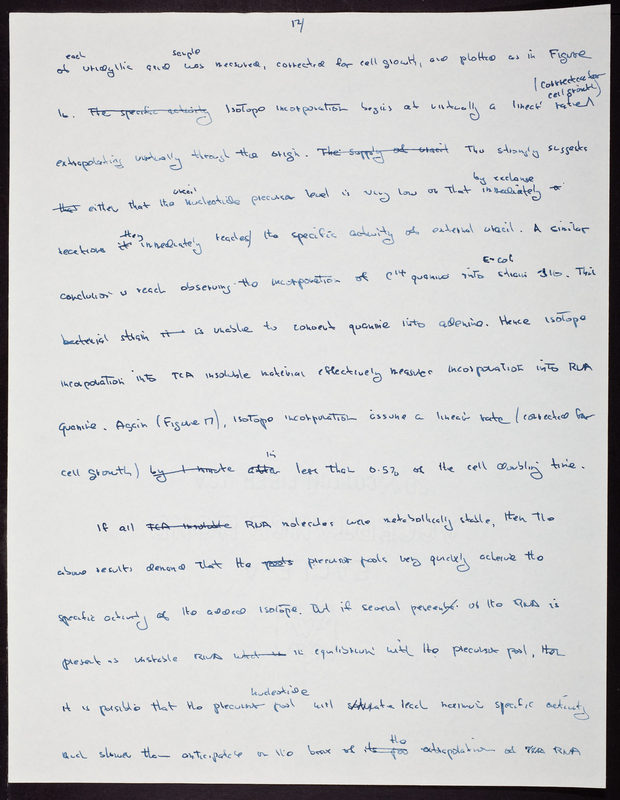 12/
each sample
of uridyllic acid was measured, corrected for cell growth, and plotted as in Figure
(corrected for cell growth)
16. The specific activity Isotope incorporation begins at virtually a linear rate
extrapolating virtually through the origin. The supply of uracil This strongly suggests
uracil by exchange
that either that the nucleotide precursor level is very low or that immediately or
they
reactions it immediately reaches the specific activity of external uracil. A similar
E-coli
conclusion is reach observing the incorporation of C14 guanine into strain B10. This
bacterial strain it is unable to convert guanine into adenine. Hence isotope
incorporation into TCA insoluble material effectively measures incorporation into RNA
guanine. Again (Figure 17), isotope incorporation assume a linear rate (corrected for
in
cell growth) by 1 minute after less than 0.5% of the cell doubling time.
If all TCA insoluble RNA molecules were metabolically stable, then the
above results demand that the pools precursor pools very quickly achieve the
specific activity of the added isotope. But if several percent of the RNA is
present as unstable RNA which is in equilibrium with the precursor pool, then
nucleotide
it is possible that the precursor pool will reach maximum specific activity
the
much slower than anticipated on the basis of its extrapolation of RNA